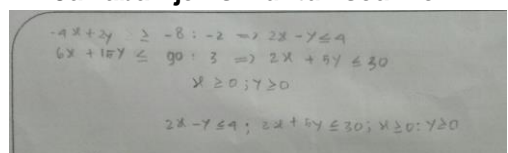 -4x + 2y ≥ -8 : -2 => 2x - y ≤ 4
6x + 15y ≤ 90 : 3 => 2x + 5y ≤ 30
x ≥ 0 ; y ≥ 0
2x - y ≤ 4 ; 2x + 5y ≤ 30 ; x ≥ 0 : y ≥ 0